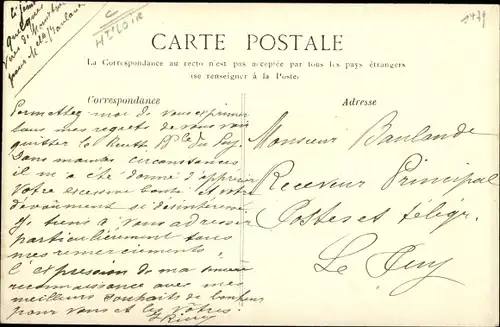 quelques
Hte LOIRE
CARTE POSTALE
La Correspondance au recto n'est pas acceptée par tous les pays étrangers
(se renseigner à la Poste.
Correspondance
Adresse
Permettez moi de vous exprimer
tous mes regrets de vous voir
quitter la Rectte Ple du Puy
Dans maintes circonstances
il m'a été donné d'apprécier
Votre excessive bonté & votre
dévouement si désintéressé
J'y tiens à vous adresser
particulièrement tous
mes remerciements.
L'expression de ma sincère
reconnaissance avec mes
meilleurs souhaits de bonheur
pour vous et les Vôtres.
Monsieur Banlande
Receveur Principal
Postes et télégr.
Le Puy